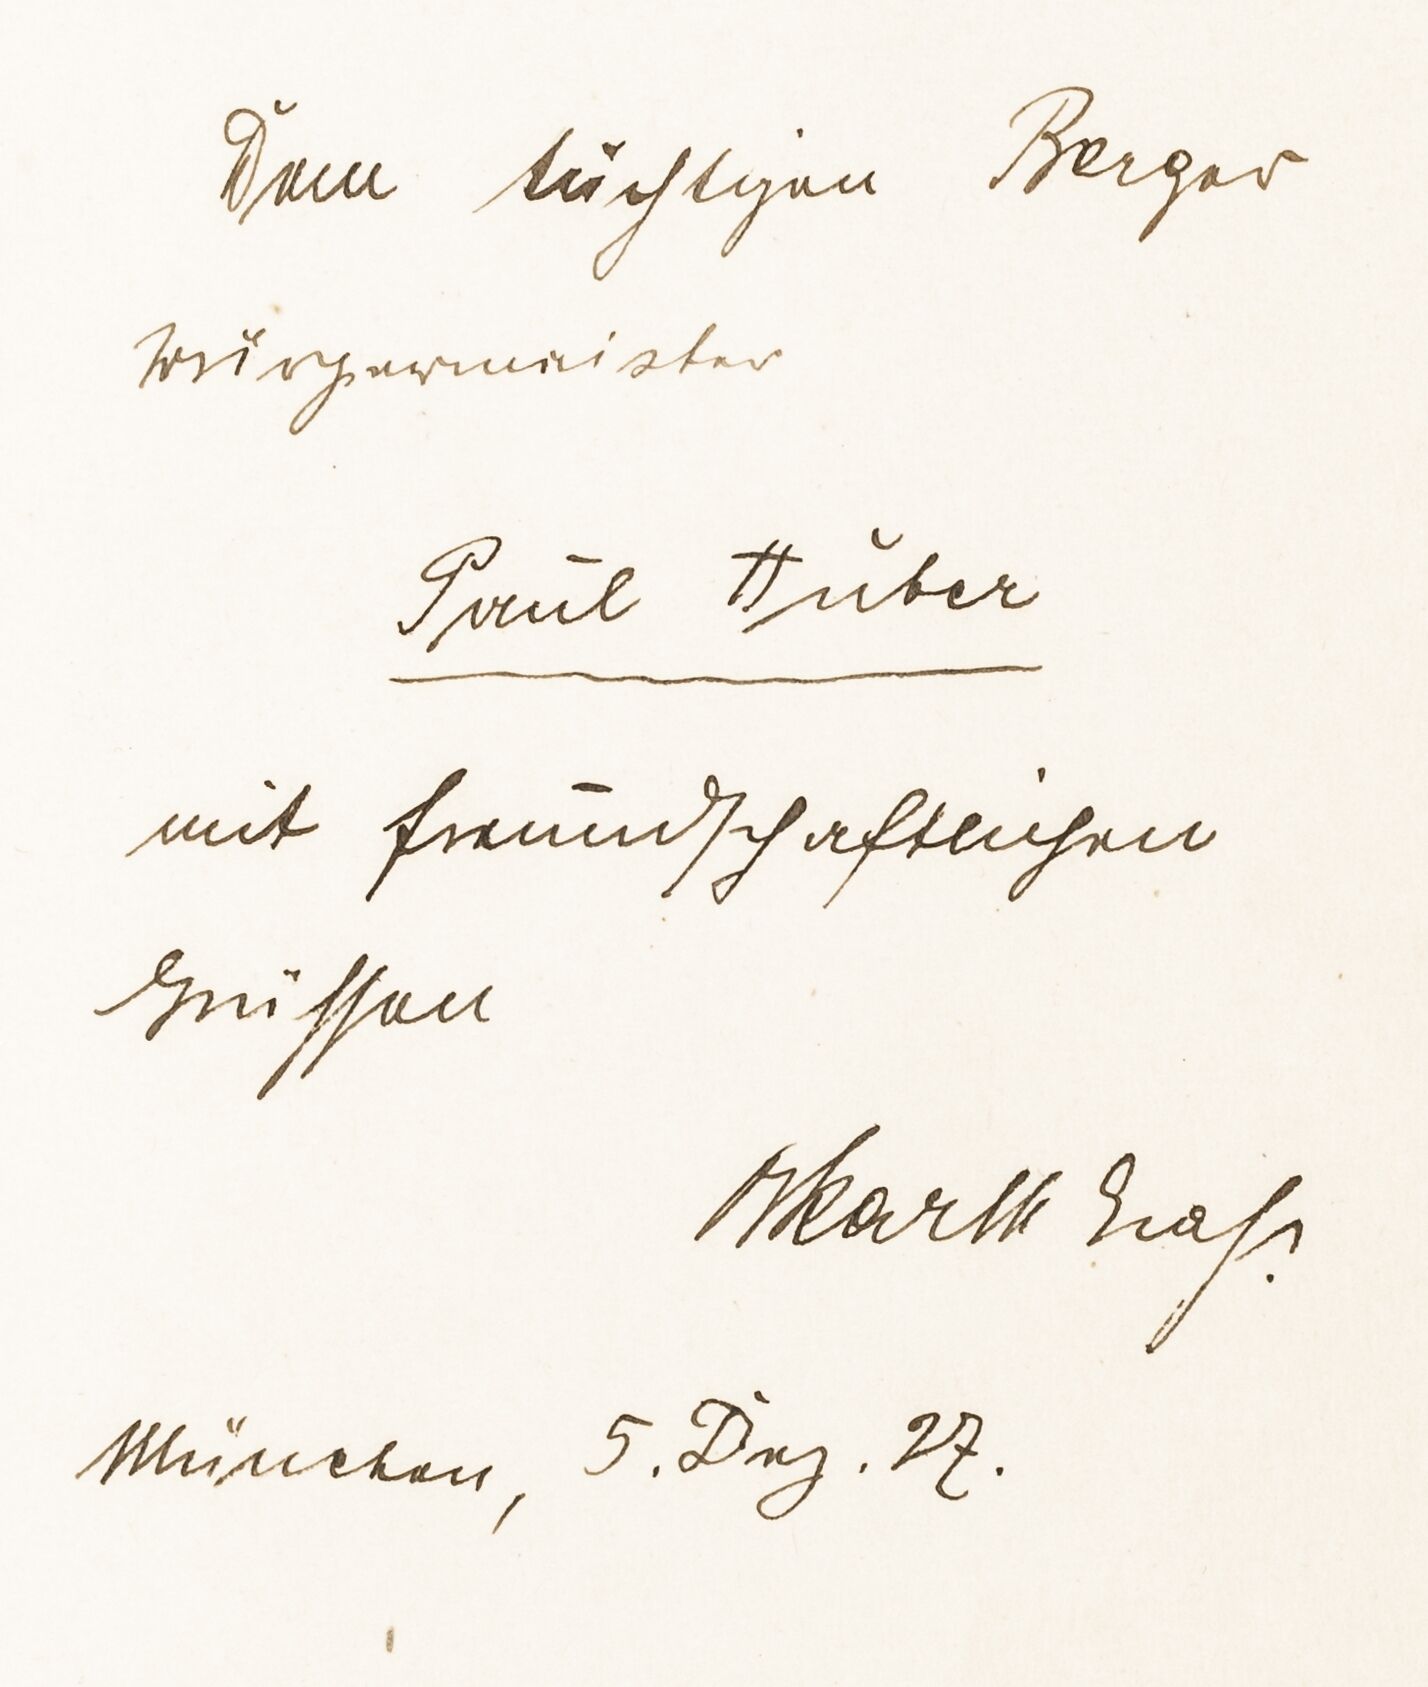 Dem tüchtigen Berger
bürgermeister
Paul Huber
mit freundschaftlichen
Grüssen
Oskar M Graf.
München, 5. Dez. 27.